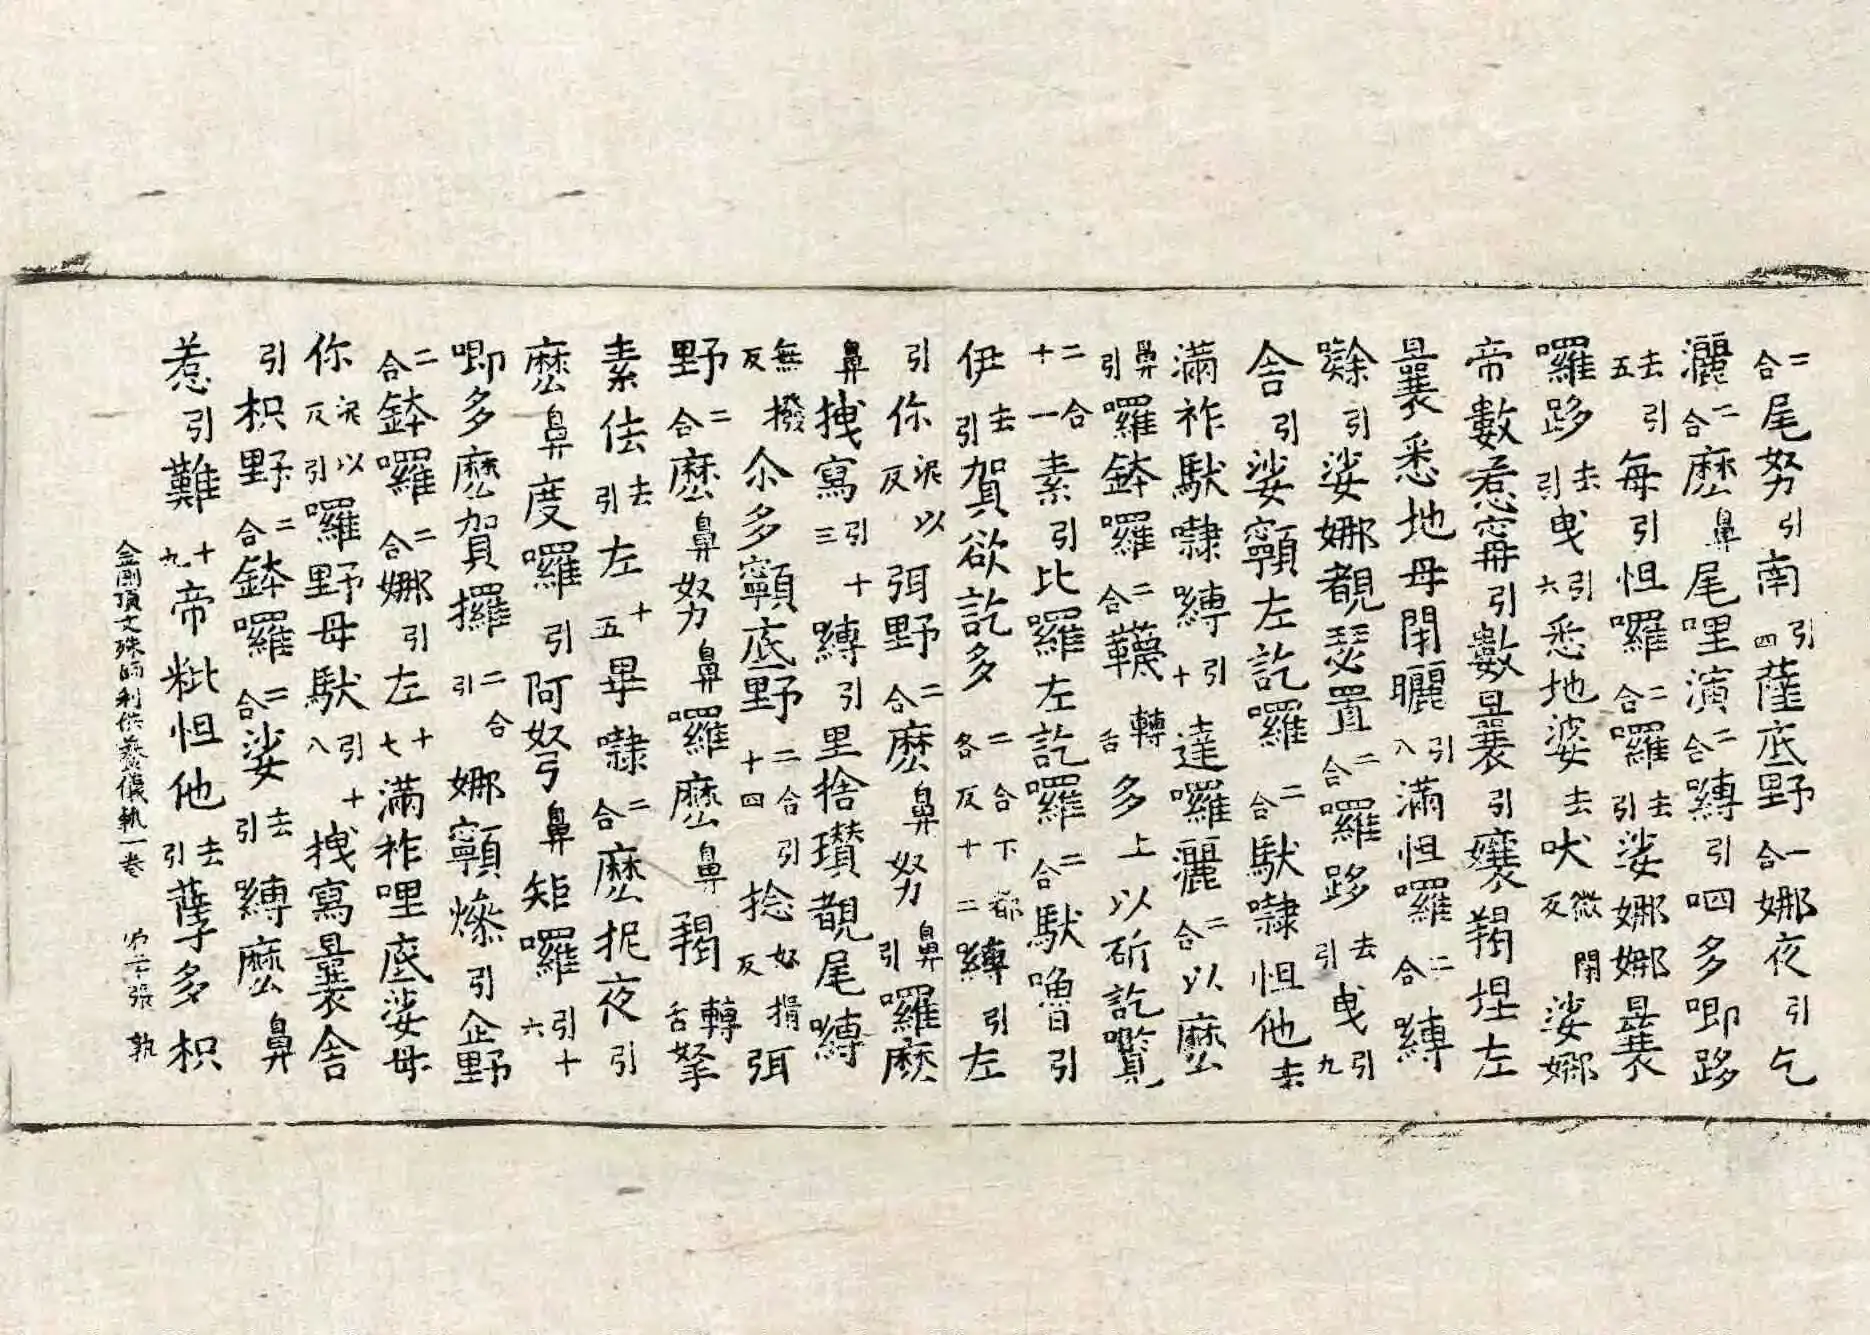 二合尾努引南引四薩底野二合娜夜引乞
灑二合麼鼻尾哩演二合嚩引呬多唧路
去引五每引怛囉二合囉去引娑娜娜曩
囉路去引曳引六悉地婆去吠微閉反娑娜
帝數惹寧引數曩引孃羯捏左
曩悉地母閉曬引八滿怛囉二合嚩
引娑娜覩瑟置二合囉路去引曳引九
舍引娑顊左訖囉二合馱隸怛他去
滿祚馱隸嚩引十達囉灑二合以麼
鼻引囉鉢囉二合韈轉舌多上以斫訖
二合十一素引比囉左訖囉二合馱嚕引
伊去引賀欲訖多二合下都各反十二嚩引左
引你泥以反弭野二合麼鼻努鼻引囉麼
鼻拽寫引十三嚩引里捨瓚覩尾嚩
無撥反尒多顊底野二合引十四捻奴揖反弭
野二合麼鼻努鼻囉麼鼻羯轉舌拏
素佉去引左十五畢隸二合麼抳夜引
麼鼻度囉引阿努鼻矩囉引十六
唧多麼賀攞二合引娜顊燦引企野
二合鉢囉二合娜引左十七滿祚哩底娑母
你泥以反引囉野母馱引十八拽寫曩舍
引枳野二合鉢囉二合娑去引嚩麼鼻
惹引難十九帝粃怛他去引孽多枳
金剛頂文殊師利供養儀軌一卷 第二十張 執